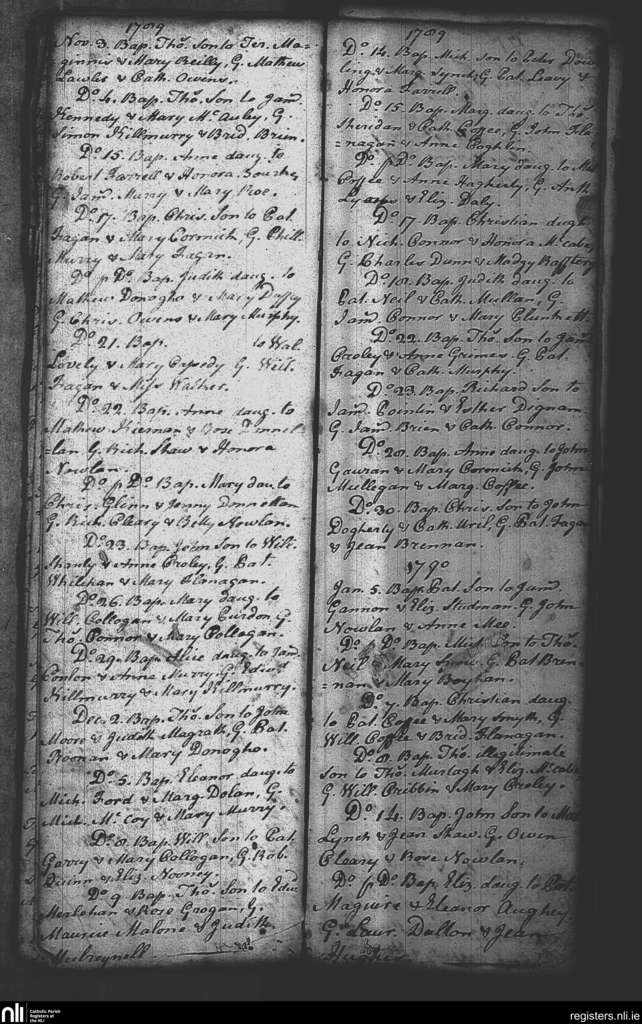 1789
Nov. 3. Bap. Tho.s Son to Ter. Ma-
=ginnis & Mary Reilly, G. Mathew
Lawler & Cath. Owens.
Do. 4. Bap. Tho.s Son to Jam.s
Kennedy & Mary Mc.Auley, G.
Simon Killmurry & Brid. Brien.
Do. 15. Bap. Anne daug. to
Robert Farrell & Honora
G. Jam.s Murry & Mary Roe.
Do. 17. Bap. Chris. Son to Pat.
Fagan & Mary Cormick, G. Phill.
Murry & Mary Fagan.
Do. p Do. Bap. Judith daug. to
Mathew Donogho & Mary Duffy
G. Chris. Owens & Mary Murphy.
Do. 21. Bap. to Wal.
Lovely & Mary G. Will.
Fagan & Miss Walker.
Do. 22. Bap. Anne daug. to
Mathew Kiernan & Rose
=lan G. Rich. Shaw & Honora
Nowlan.
Do. p Do. Bap. Mary dau. to
Chris. Glinn & Jenny
G. Rich. Cleary & Betty Nowlan.
Do. 23. Bap. John Son to Will.
Shanly & Anne Croley, G. Pat.
Whelehan & Mary Flanagan.
Do. 26. Bap. Mary daug. to
Will. Collogan & Mary Curdon G.
Tho.s Connor & Mary Collogan.
Do. 29. Bap. Alice daug. to Jam.
Conlon & Anne Murry, G.
Killmurry & Mary Killmurry.
Dec. 2. Bap. Tho.s Son to John
Moore & Judith Magrath, G. Pat.
Noonan & Mary Donogho.
Do. 5. Bap. Eleanor daug. to
Mich. Ford & Marg. Dolan, G.
Mich. Mc.Coy & Mary Murry.
Do. 8. Bap. Will. Son to Pat.
Garry & Mary Collogan, G. Rob.
Quinn & Eliz. Nooney.
Do. 9. Bap. Tho.s Son to Edw.
& Rose Grogan, G.
Maurice Malone & Judith
1789
Do. 14. Bap. Mich. Son to Peter Dow
ling & Marg. Lynch, G. Pat. Leavy &
Honora Farrell.
Do. 15. Bap. Marg. daug. to Tho.s
Sheridan & Cath. Coffee, G. John Fla
=nagan & Anne Coghlen.
Do. p Do. Bap. Mary daug. to
Coffee & Anne Hagherty, G. Anth.
& Eliz. Daly.
Do. 17. Bap. Christian daug.
to Nich. Connor & Honora Mc.cabe,
G. Charles Dunn & Madgy
Do. 18. Bap. Judith daug. to
Pat. Neil & Cath. Mullan, G.
Jam.s Connor & Mary Plunkett.
Do. 22. Bap. Tho.s Son to Jam.s
Croley & Anne Grimes G. Pat.
Fagan & Cath. Murphy.
Do. 23. Bap. Richard Son to
Jam.s & Esther Dignam
G. Jam.s Brien & Cath. Connor.
Do. 28. Bap. Anne daug. to John
Gauran & Mary Cormick, G. John
Mullegan & Marg. Coffee.
Do. 30. Bap. Chris. Son to John
Dogherty & Cath. Uril, G. Pat. Fagan
& Jean Brennan.
1790
Jan. 5. Bap. Pat. Son to Jam.s
Gannon & Eliz. G. John
Nowlan & Anne Mee.
Do. Do. Bap. Mich. Son to Tho.s
Neil & Mary G. Pat. Bren-
=nan & Mary Boyhan.
Do. 7. Bap. Christian daug.
to Pat. Coffee & Mary Smyth, G.
Will. Coffee & Brid. Flanagan.
Do. 8. Bap. Tho.s illegitimate
Son to Tho.s Murtagh & Eliz. Mc.cabe
G. Will. Cribbin & Mary Croley.
Do. 14. Bap. John Son to
Lynch & Jean Shaw. G. Owen
Cleary & Rose Nowlan.
Do. p Do. Bap. Eliz. daug. to Pat.
Maguire & Eleanor Aughey
G. Laur. Dalton & Jean
nli
Catholic Parish
Registers at
the NLI
registers.nli.ie